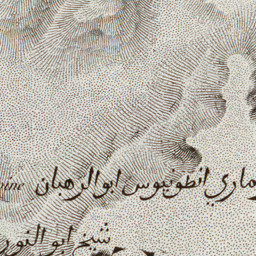 ماري انطونيوس ابو الرهبان
شيخ ابو النور